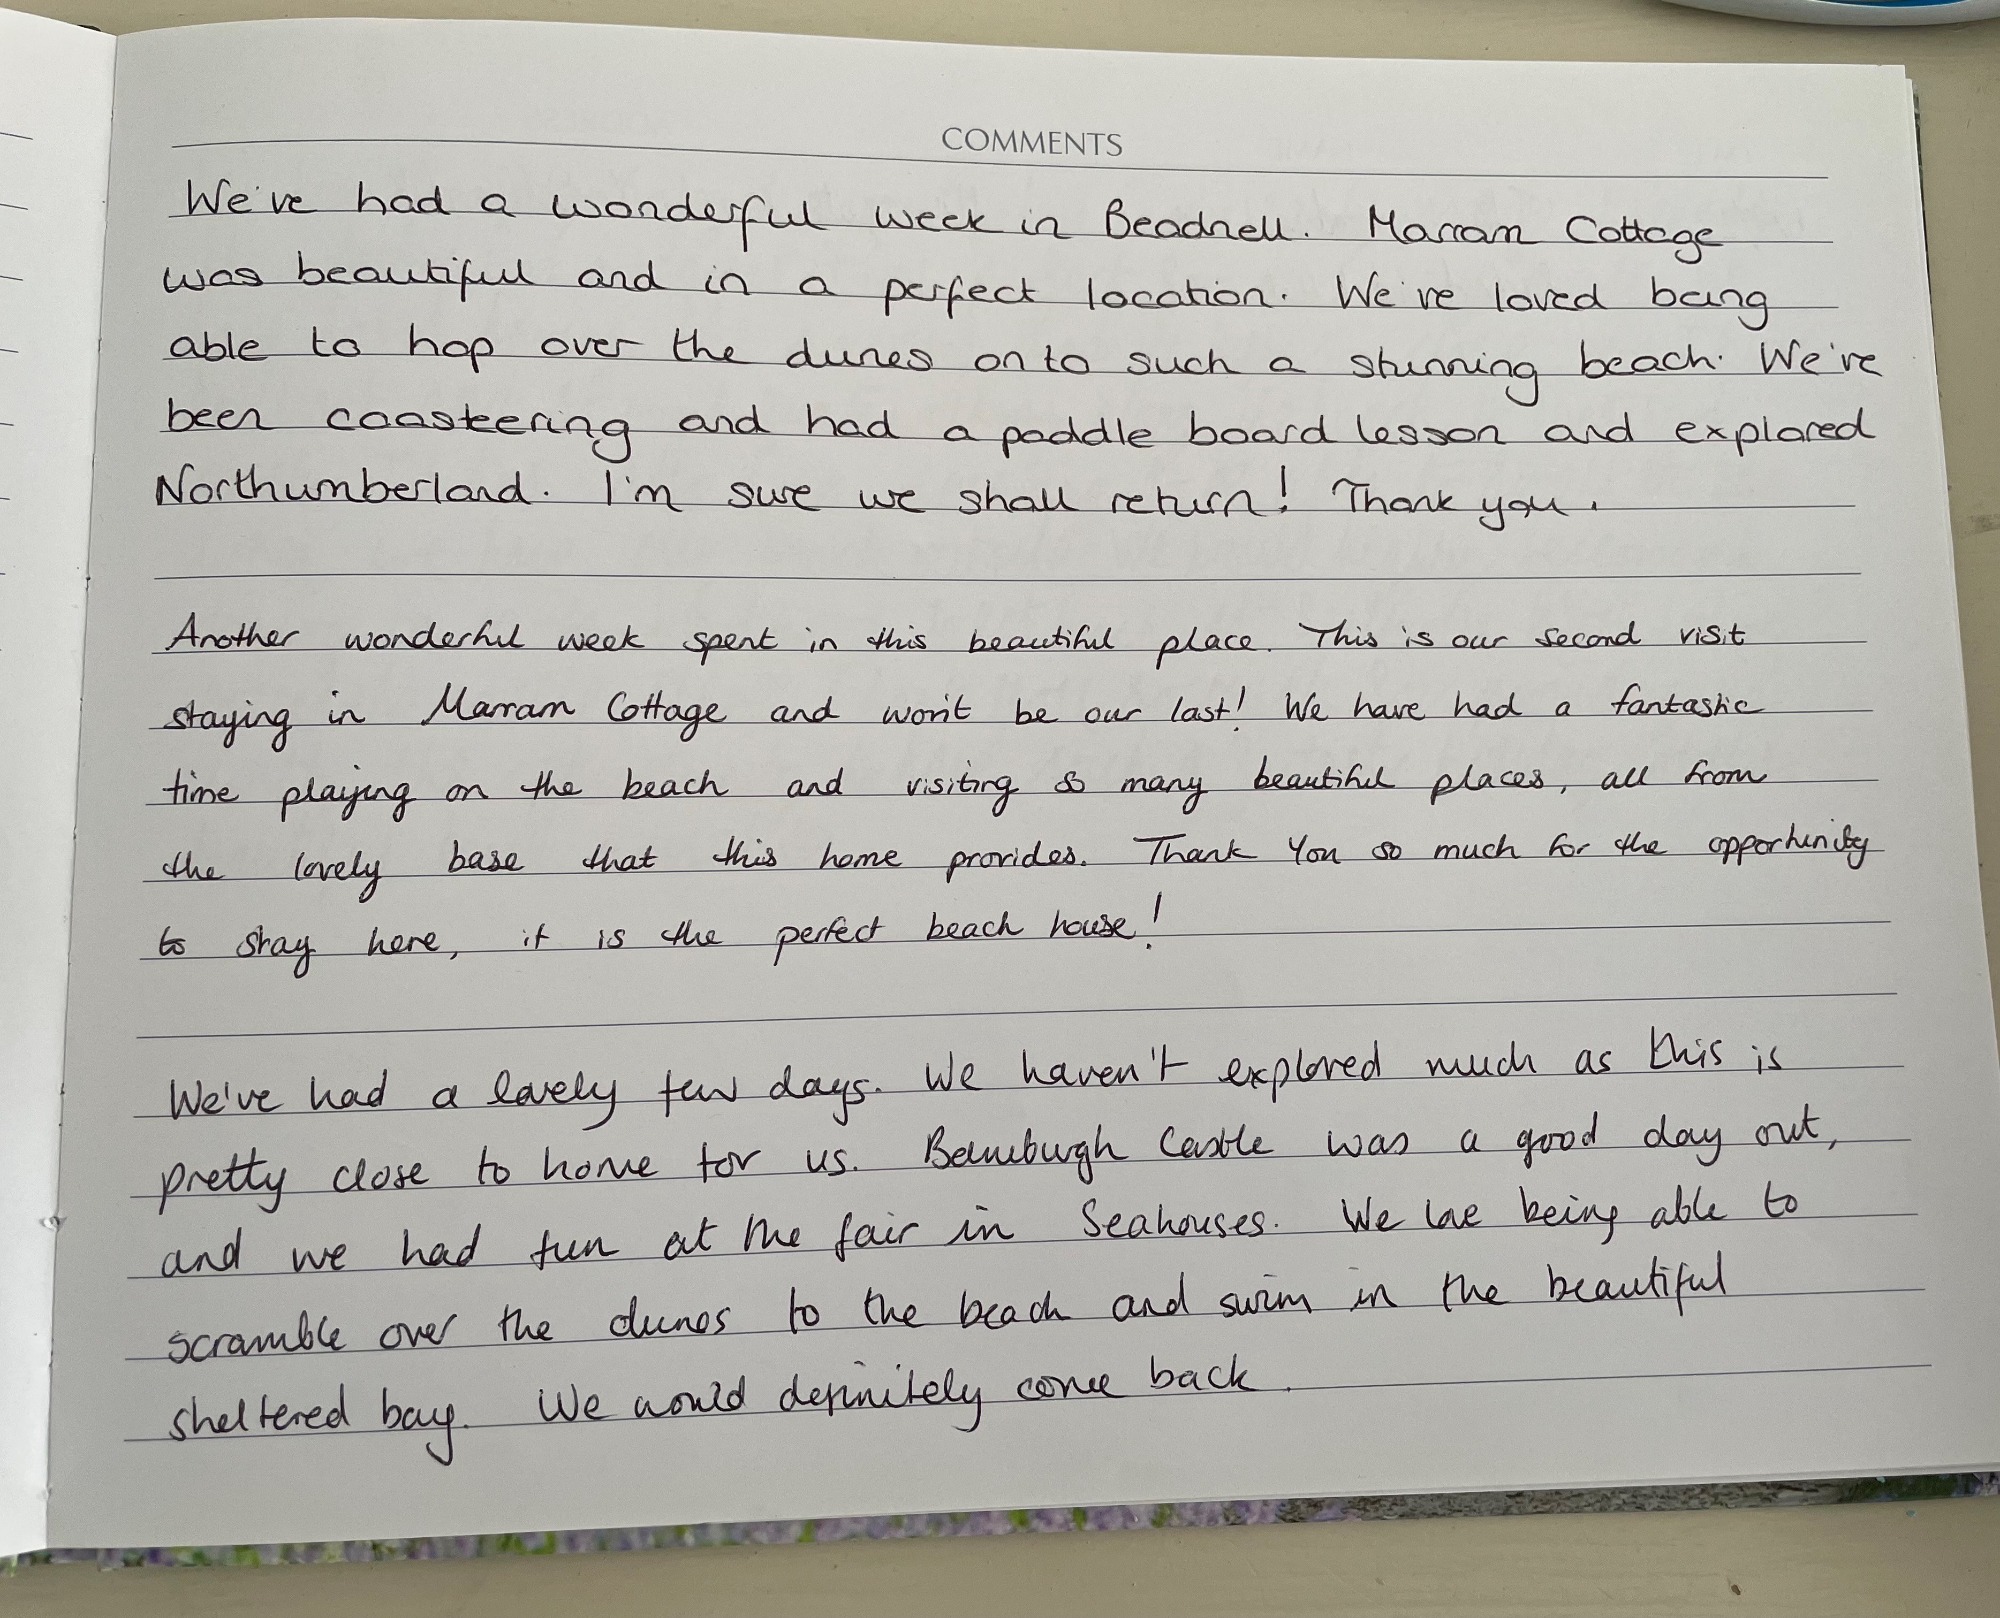 COMMENTS
We've had a wonderful week in Beadnell. Marram Cottage
was beautiful and in a perfect location. We've loved being
able to hop over the dunes onto such a stunning beach. We've
been coasteering and had a paddle board lesson and explored
Northumberland. I'm sure we shall return! Thank you.
Another wonderful week spent in this beautiful place. This is our second visit
staying in Marram Cottage and won't be our last! We have had a fantastic
time playing on the beach and visiting so many beautiful places, all from
the lovely base that this home provides. Thank You so much for the opportunity
to stay here, it is the perfect beach house!
We've had a lovely few days. We haven't explored much as this is
pretty close to home for us. Bamburgh Castle was a good day out,
and we had fun at the fair in Seahouses. We love being able to
scramble over the dunes to the beach and swim in the beautiful
sheltered bay. We would definitely come back.